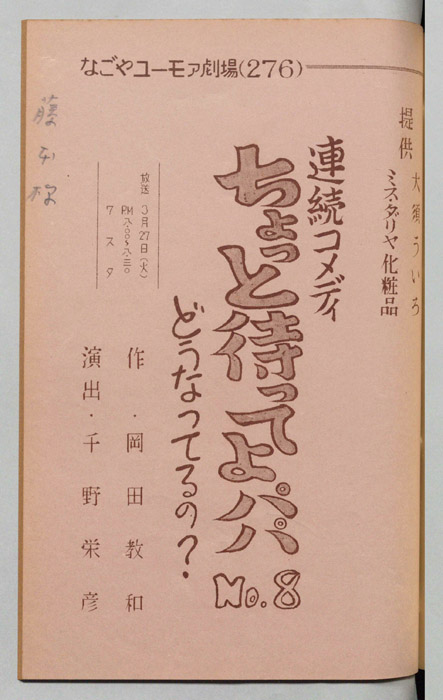 なごやユーモア劇場(276)
提供 大須ういろ
ミスダリヤ化粧品
連続コメディ
ちょっと待ってよパパ No.8
どうなってるの?
放送 3月27日(火)
PM 八.〇〇〜八.三〇
7スタ
作・岡田教和
演出・千野栄彦
藤本様